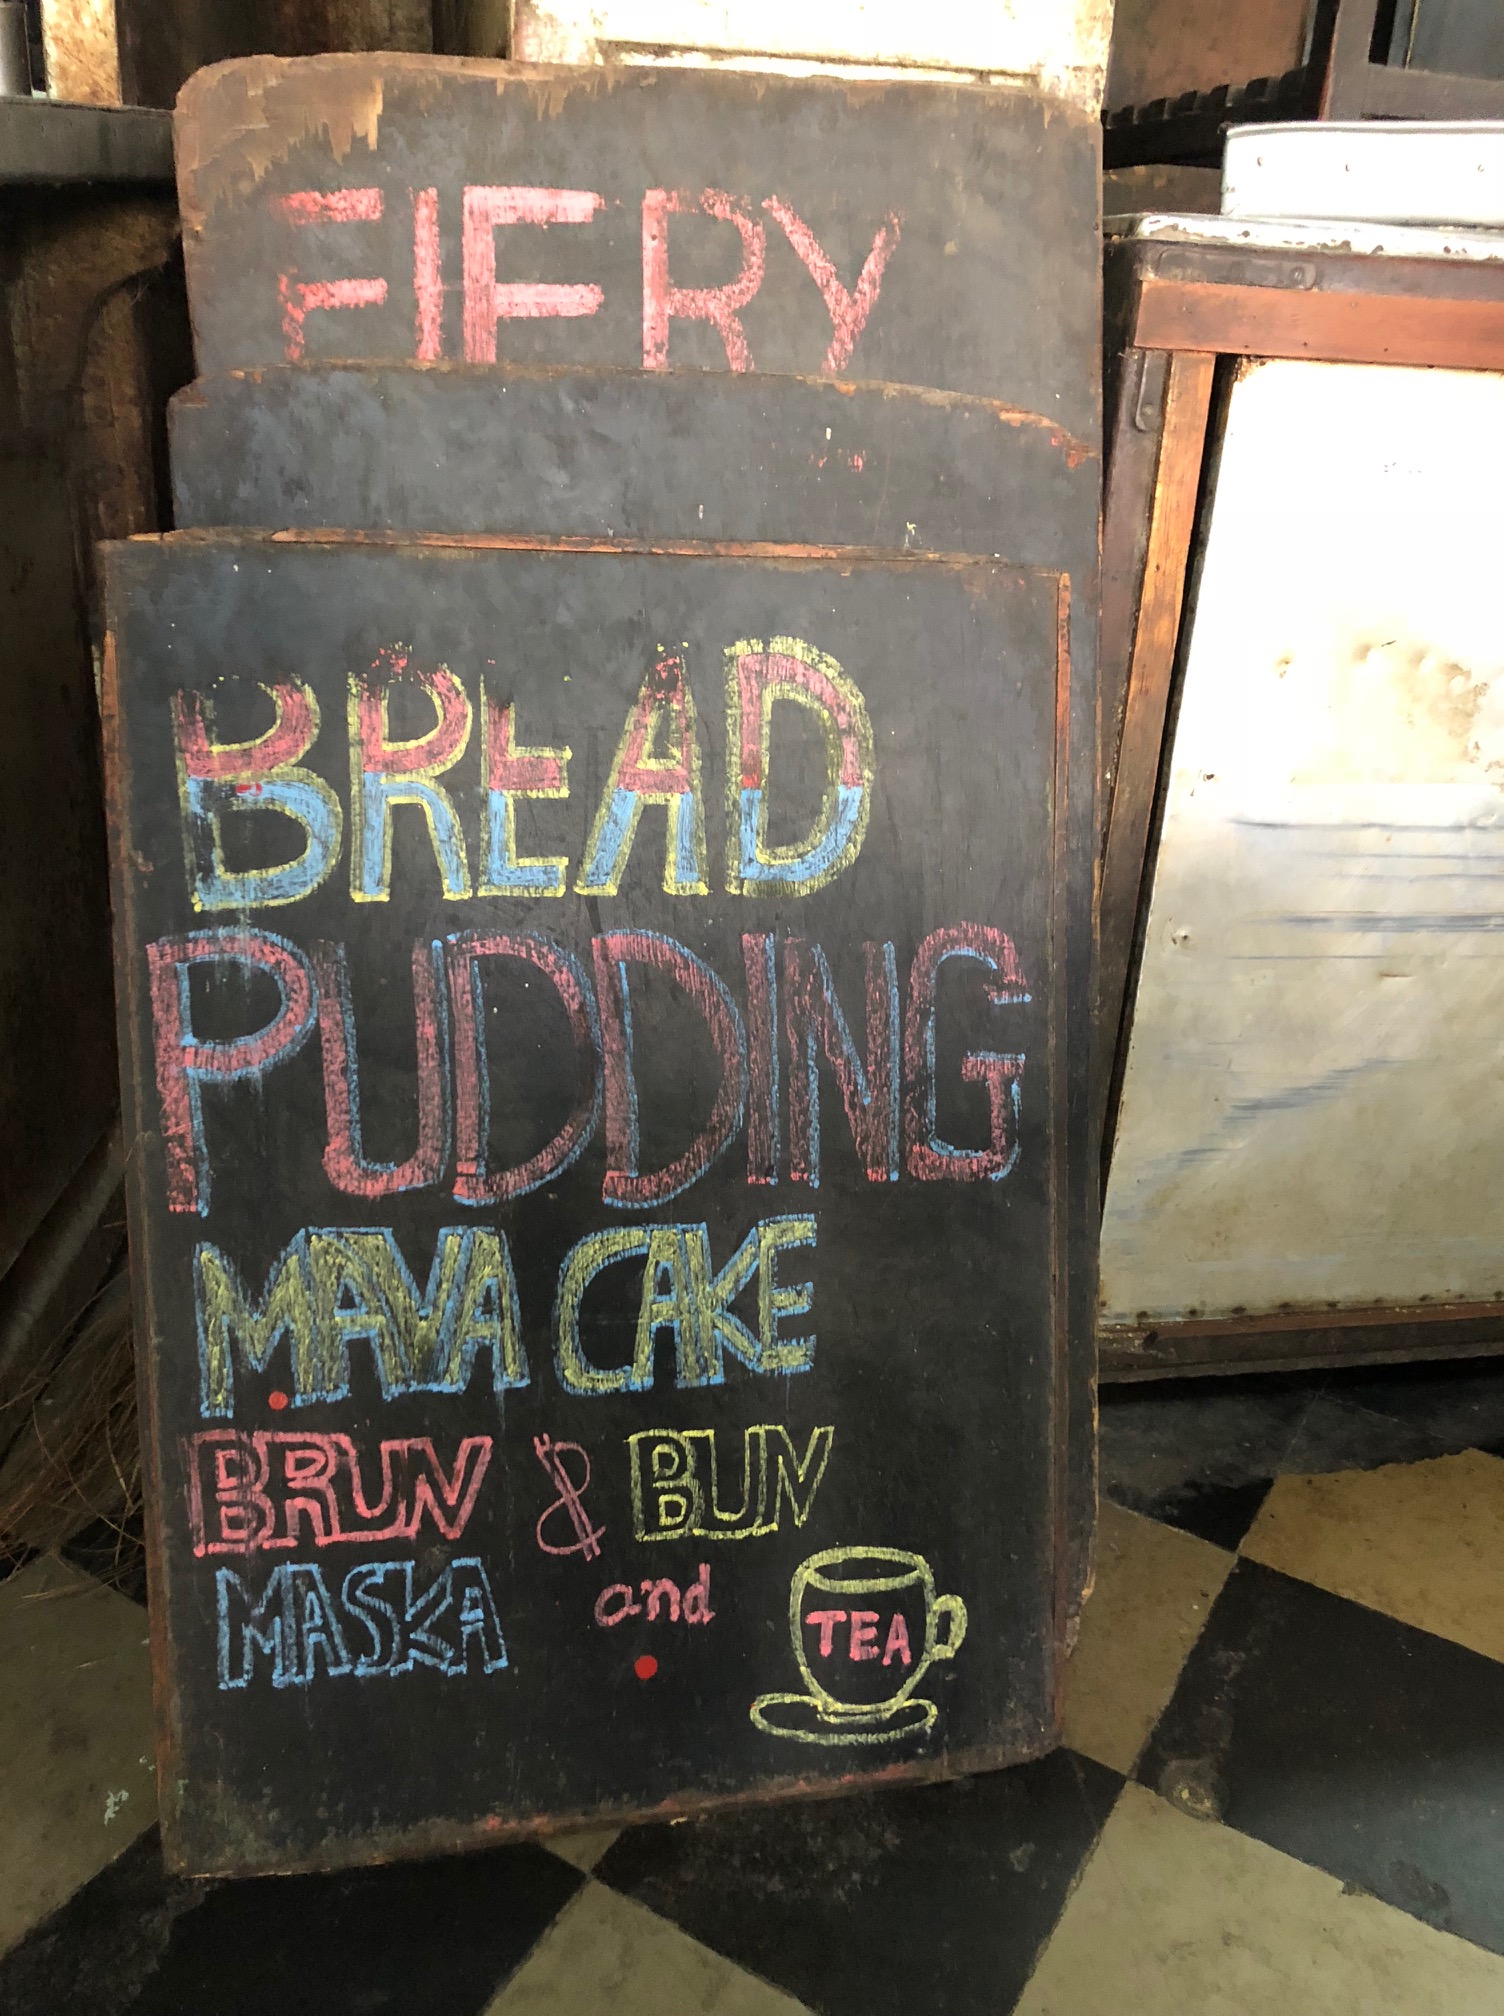 FIERY
BREAD
PUDDING
MAVA CAKE
BRUN & BUN
MASKA and TEA